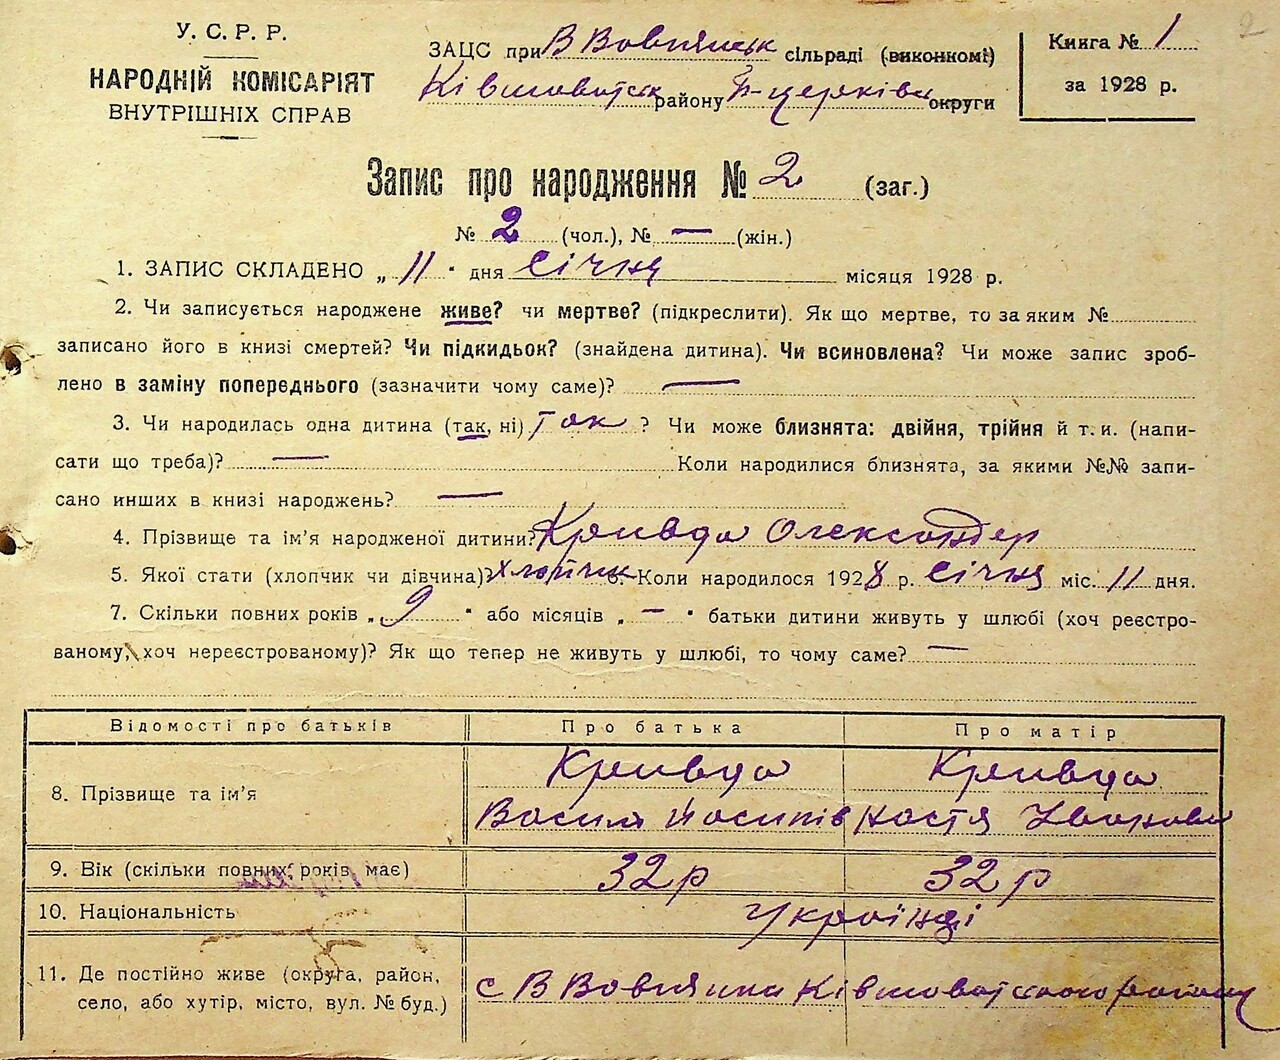 У. С. Р. Р.
НАРОДНІЙ КОМІСАРІЯТ
ВНУТРІШНІХ СПРАВ
ЗАЦС при В Вовнянськ сільраді (виконкомі)
Ківшоватськ району Б-церківськ округи
Книга № 1
за 1928 р.
2
Запис про народження № 2 (заг.)
№ 2 (чол.), № — (жін.)
1. ЗАПИС СКЛАДЕНО „ 11 " дня Січня місяця 1928 р.
2. Чи записується народжене живе? чи мертве? (підкреслити). Як що мертве, то за яким №
записано його в книзі смертей? Чи підкидьок? (знайдена дитина). Чи всиновлена? Чи може запис зроб-
лено в заміну попереднього (зазначити чому саме)? —
3. Чи народилась одна дитина (так, ні) Так ? Чи може близнята: двійня, трійня й т. и. (напи-
сати що треба)? — Коли народилися близнята, за якими №№ запи-
сано инших в книзі народжень? —
4. Прізвище та ім'я народженої дитини? Кривда Олександер
5. Якої стати (хлопчик чи дівчина)? хлопчик 6. Коли народилося 1928 р. Січня міс. 11 дня.
7. Скільки повних років „ 9 " або місяців „ — " батьки дитини живуть у шлюбі (хоч реєстро-
ваному, хоч нереєстрованому)? Як що тепер не живуть у шлюбі, то чому саме? —
Відомості про батьків Про батька Про матір
8. Прізвище та ім'я Кривда Кривда
Василь Йосипів Настя
9. Вік (скільки повних років має) 32 р 32 р
10. Національність Українці
11. Де постійно живе (округа, район,
село, або хутір, місто, вул. № буд.) с В Вовнянка Ківшоватського району